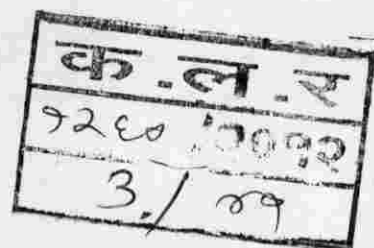 क.ल.र
१२६० /२०१२
3./ ४१